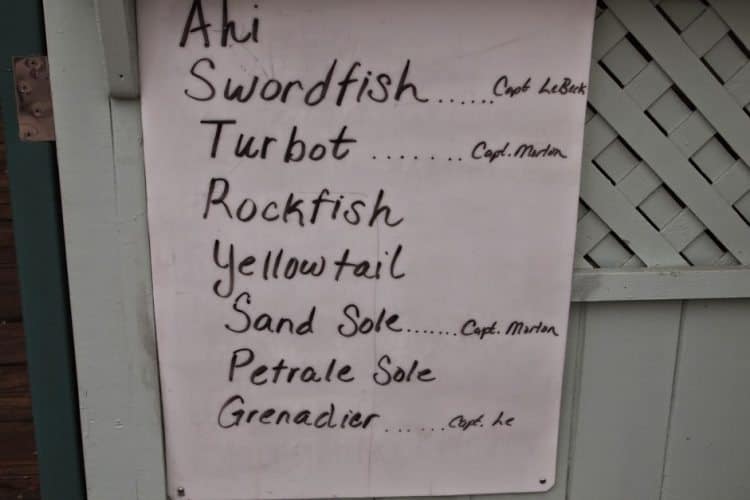 Ahi
Swordfish ...... Capt LeBeck
Turbot ....... Capt. Morton
Rockfish
Yellowtail
Sand Sole....... Capt. Morton
Petrale Sole
Grenadier ...... Capt. Le